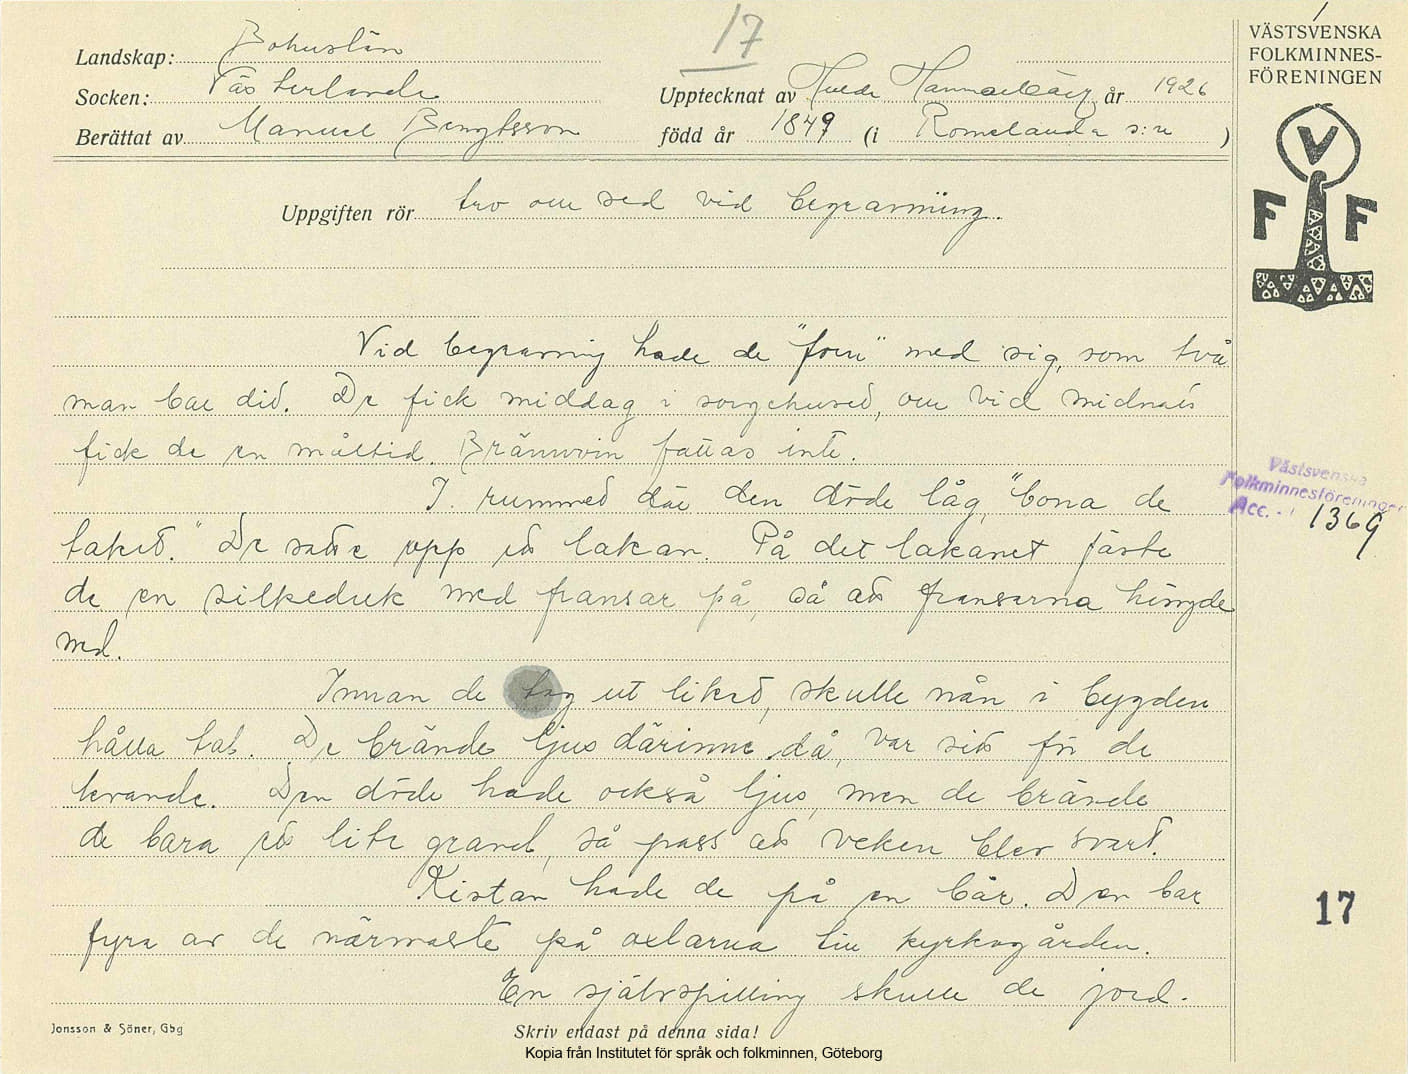 17
VÄSTSVENSKA
FOLKMINNES-
FÖRENINGEN
V
F F
Landskap: Bohuslän
Socken: Västerlanda
Upptecknat av Hulda Hammarbäck år 1926
Berättat av Manuel Bengtsson född år 1849 (i Romelanda s:n )
Uppgiften rör tro om sed vid begravning.
Vid begravning hade de "förn" med sig, som två
man bar did. De fick middag i sorgehused, om vid midnatt
fick de en måltid. Brännvin fattas inte.
I rummed där den döde låg, "bona de
taked." De satte upp ett lakan. På det lakanet fäste
de en silkeduk med fransar på, så att fransarna hängde
ned.
Innan de tog ut liked, skulle nån i bygden
hålla tal. De brände ljus därinne då, var sitt för de
levande. Den döde hade också ljus, men de brände
de bara ett lite grand, så pass att veken blev svart.
Kistan hade de på en bår. Den bar
fyra av de närmaste på axlarna till kyrkogården.
En självspilling skulle de jord-
Västsvenska
Folkminnesföreningen
Acc. 1369
17
Jonsson & Söner, Gbg
Skriv endast på denna sida!
Kopia från Institutet för språk och folkminnen, Göteborg